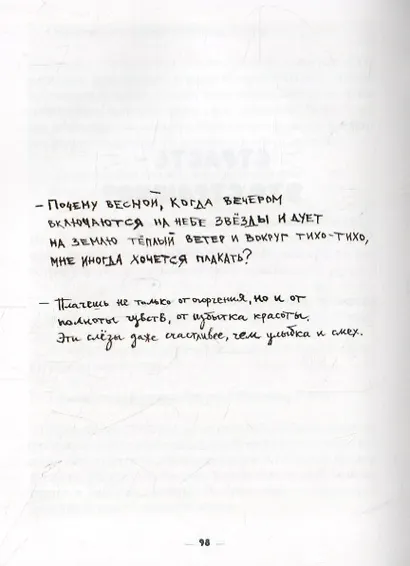 – Почему весной, когда вечером
включаются на небе звёзды и дует
на землю тёплый ветер и вокруг тихо-тихо,
мне иногда хочется плакать?
– Плачешь не только от огорчения, но и от
полноты чувств, от избытка красоты.
Эти слёзы даже счастливее, чем улыбка и смех.
— 98 —